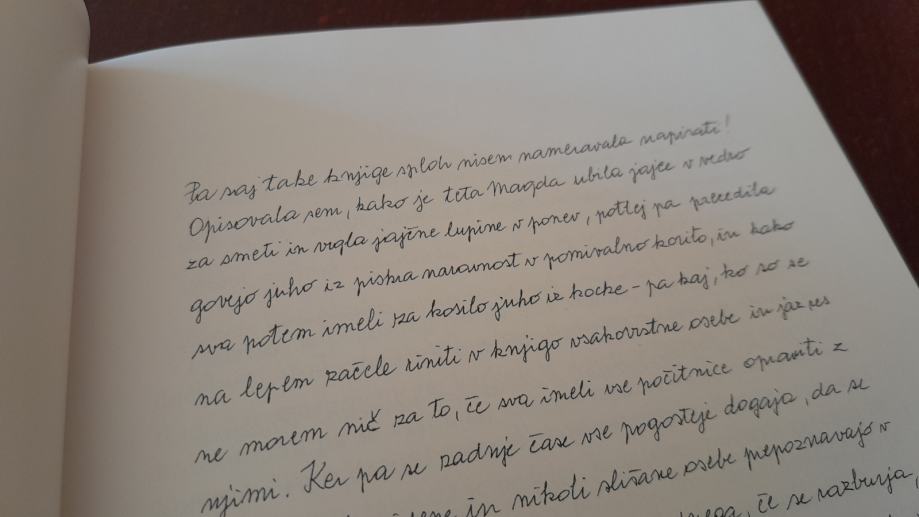 Pa saj take knjige sploh nisem nameravala napisati!
Opisovala sem, kako je teta Magda ubila jajce v vedro
za smeti in vrgla jajčne lupine v ponev, potlej pa precedila
govejo juho iz piskra naravnost v pomivalno korito, in kako
sva potem imeli za kosilo juho iz kocke – pa kaj, ko so se
na lepem začele riniti v knjigo vsakovrstne osebe in jaz res
ne morem nič za to, če sva imeli vse počitnice opraviti z
njimi. Ker pa se zadnje čase vse pogosteje dogaja, da se
in nikoli slišane osebe prepoznavajo v
če se razburja,